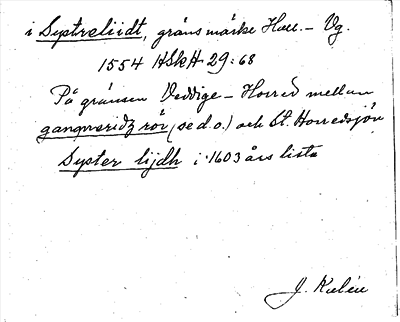 i Systreliidt, gränsmärke Hall. – Vg.
1554 HSkH 29:68
På gränsen Veddige – Horred mellan
gangnaridz rör (se d. o.) och St. Horredsjön
Syster lijdh i 1603 års lista
J. Kalén